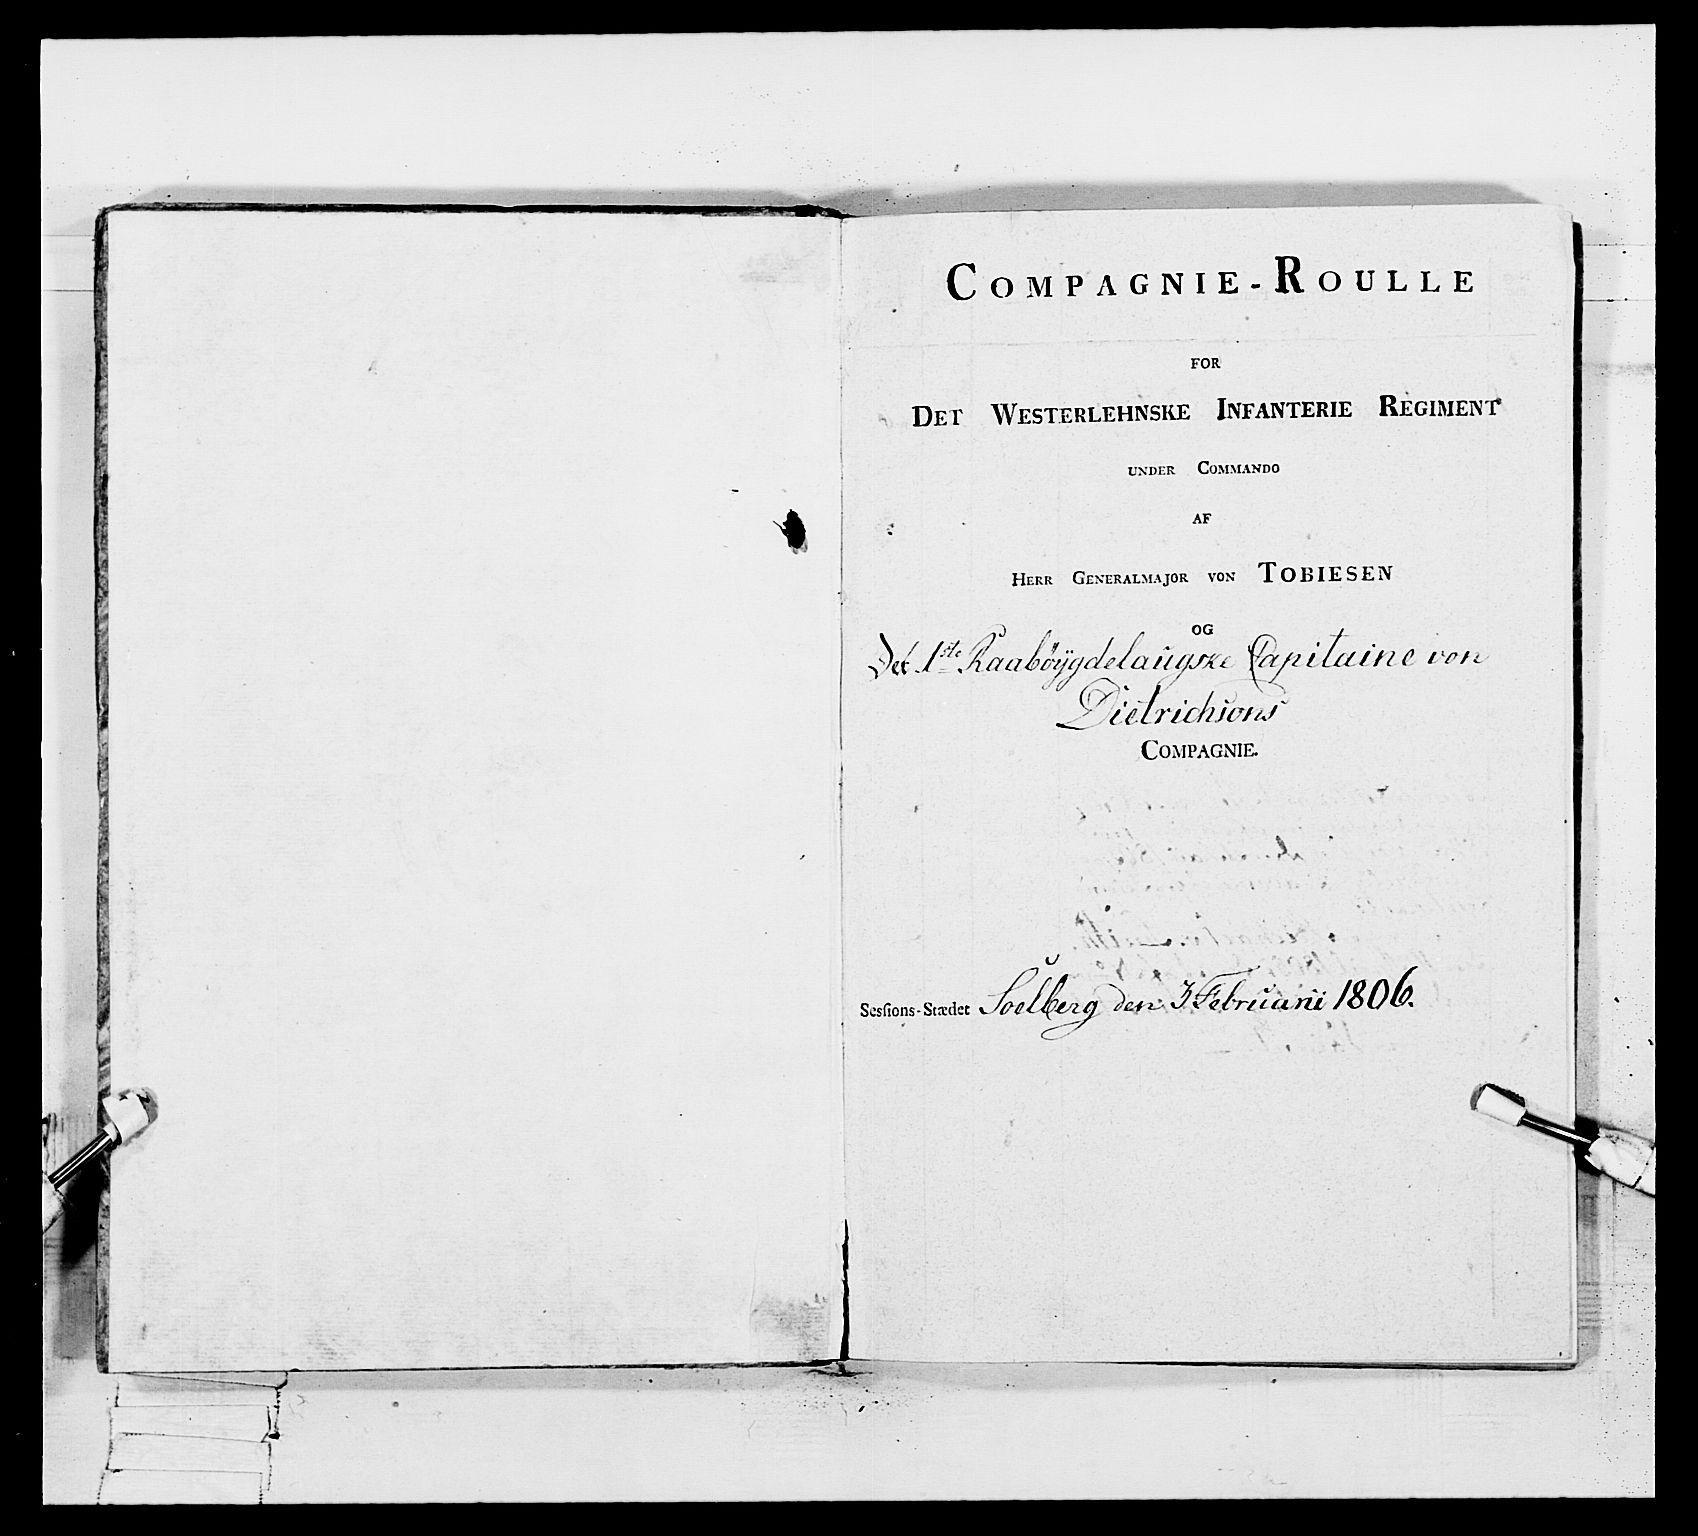 COMPAGNIE-ROULLE
FOR
DET WESTERLEHNSKE INFANTERIE REGIMENT
UNDER COMMANDO
AF
HERR GENERALMAJOR VON TOBIESEN
OG
Det 1ste Raabøÿgdelaugske Capitaine von
Dietrichsons
COMPAGNIE.
Sesſions-Stædet Soelberg den 3 Februarii 1806.